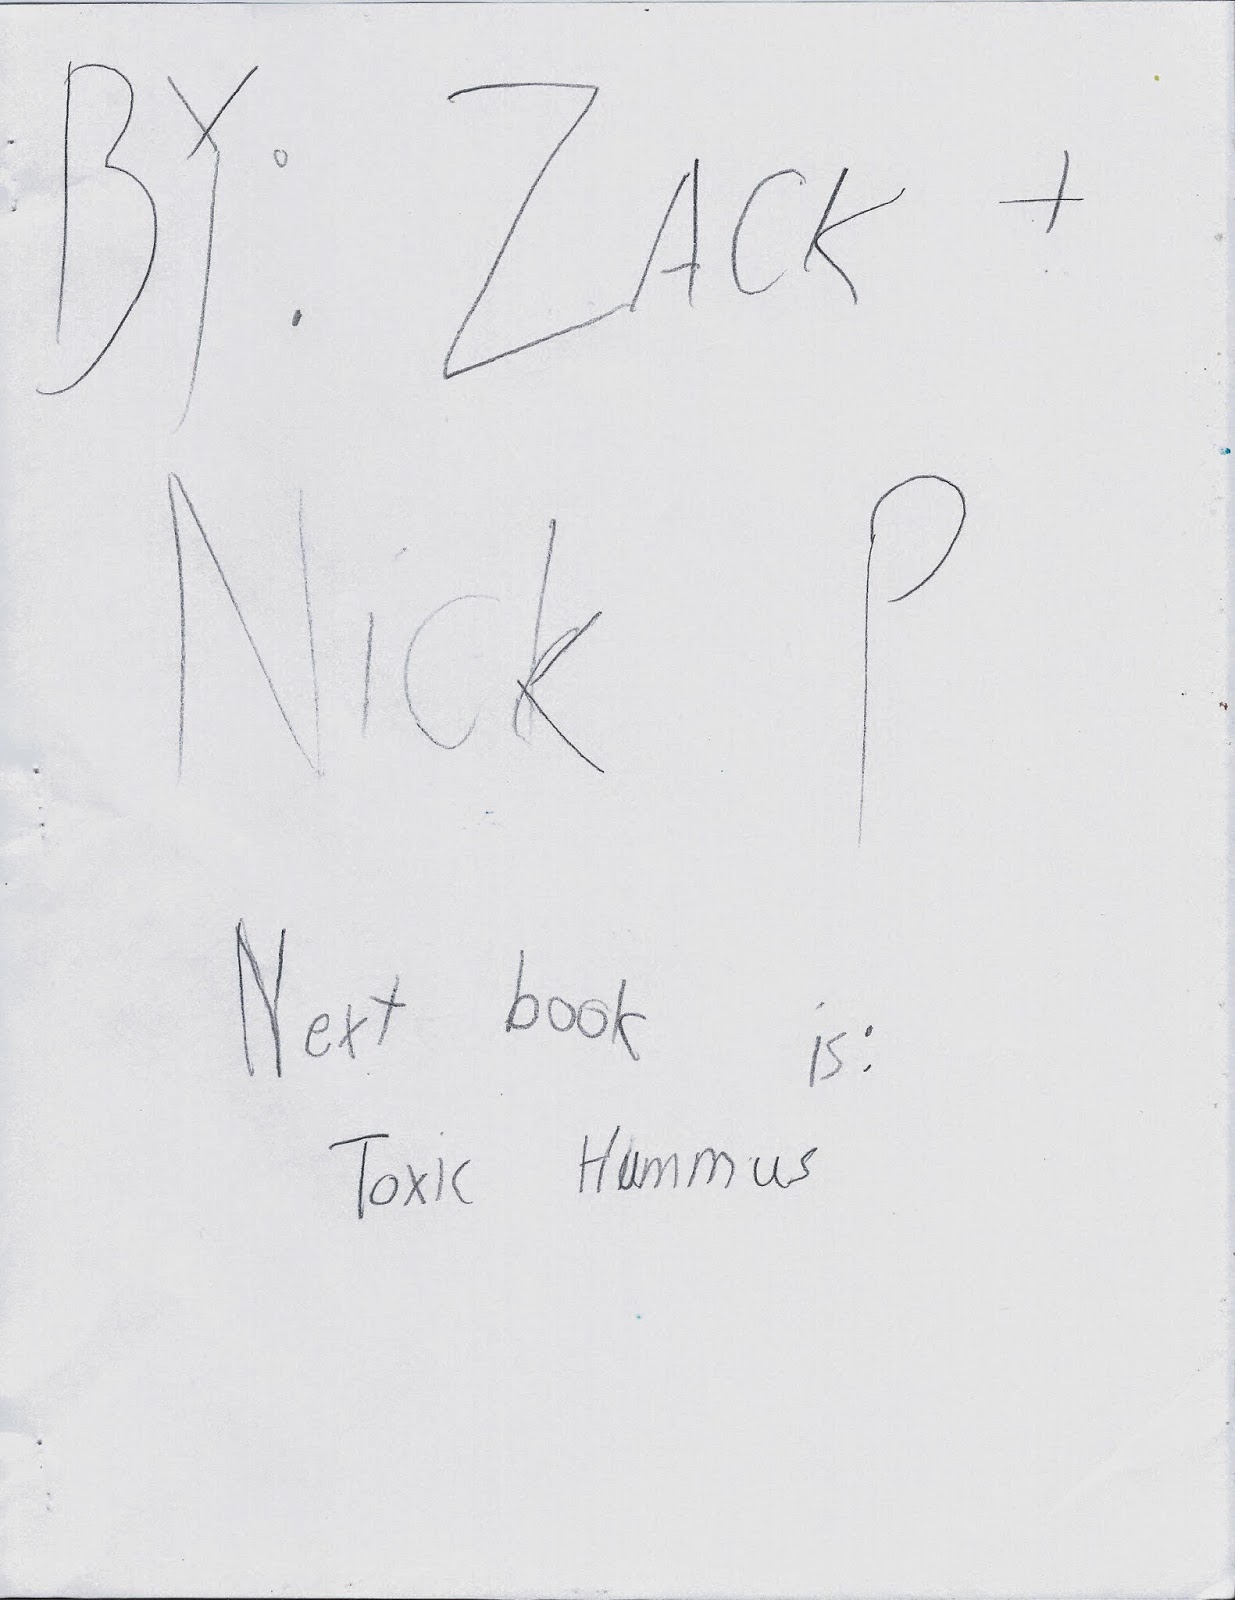 BY: ZACK +
Nick P
Next book is:
Toxic Hummus